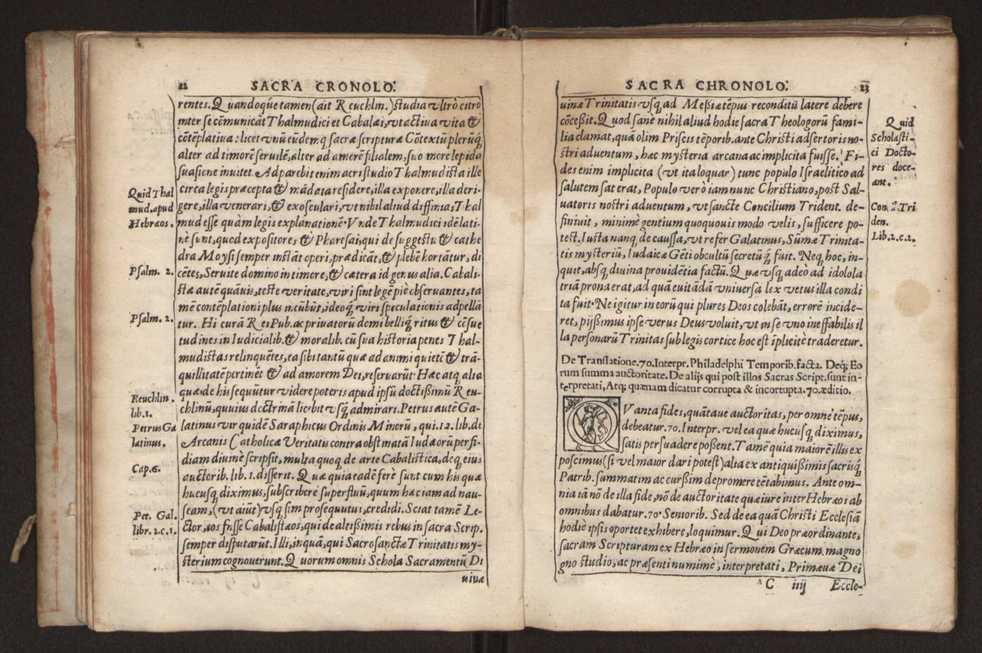 22 SACRA CRONOLO.
rentes. Quandoque tamen (ait Reuchlm.) studia vltrò citrò
inter se cõmunicãt Thalmudici et Cabalai, vt actiua vita &
cõtẽplatiua: licet vnũ eũdemq; sacræ scripturæ Cõtextũ plerũq;
alter ad timorẽ seruilẽ, alter ad amorẽ filialem, suo more lepida
suasione inuitet. Ad parebit enim acri studio Thalmudista ille
circa legis præcepta & mãdata residere, illa exponere, illa deri-
gere, illa venerari, & exosculari, vt nihil aliud dissinias, Thal
mud esse quàm legis explanationẽ. Vnde Thalmudici idẽ lati-
nè sunt, quod expositores & Pharesai, qui de suggestu & cathe
dra Moysi semper instãt operi, prædicãt, & plebẽ hortãtur, di
cẽtes, Seruite domino in timore, & cætera id genus alia. Cabali-
stæ autẽ quãuis, teste veritate, viri sint legẽ piè obseruantes, ta
mẽ contẽplationi plus incũbũt, ideoq; viri speculationis adpellã
tur. Hi curã Rei Pub. ac priuatorũ domi belliq; ritus & cõsue
tudines in Iudicialib. & moralib. cũ sua historia penes Thal-
mudistas relinquẽtes, ea sibi tantũ quæ ad animi quietẽ & trã-
quillitatẽ pertinẽt & ad amorem Dei, reseruarũt. Hæc atq; alia
quæ de his sequũtur videre poteris apud ipsũ doctissimũ Reu-
chlinũ, quiuius doctrinã licebit vsq; admirars. Petrus autẽ Ga-
latinus vir quidẽ Saraphicus Ordinis Minorũ, qui. 12. lib. de
Arcanis Catholicæ Veritatis contra obstinatã Iudæorũ perfi-
diam diuinè scripsit, multa quoq; de arte Cabalistica, deq; eius
auctorib. lib. 1. disserit. Quæ quia eadẽ ferè sunt cum his quæ
hucusq; diximus, subscribere superfluũ, quum hæc iam ad nau-
seam, (vt aiũt) vsq; sim prosequutus, credidi. Sciat tamẽ Le-
ctor, nos fuisse Cabalistæos, qui de altissimis rebus in sacra Scrip.
semper disputarũt. Illi, inquã, qui Sacrosanctæ Trinitatis my-
sterium cognouerunt. Quorum omnis Schola Sacramentũ Di
uinæ
Quid Thal
mud. apud
Hebræos.
Psalm. 2.
Psalm. 2.
Reuchlin.
lib. 1.
Petrus Ga
latinus.
Cap. 6.
Pet. Gal.
libr. 2. c. 1.
SACRA CHRONOLO. 23
uinæ Trinitatis vsq; ad Messiæ tẽpus reconditũ latere debere
cõcessit. Quod sanè nihil aliud hodie sacra Theologorũ fami-
lia clamat, quã olim Priscis tẽporib. ante Christi adsertoris no-
stri aduentum, hæc mysteria arcana ac implicita fuisse. Fi-
des enim implicita (vt ita loquar) tunc populo Israelitico ad
salutem sat erat, Populo verò iam nunc Christiano, post Sal-
uatoris nostri aduentum, vt sancte Concilium Trident. de-
finiuit, minimè gentium quoquouis modo velis, sufficere po-
test. Iusta nanq; de caussa, vt refer Galatinus, Sũmæ Trinita-
tis mysteriũ, Iudaicæ Gẽti occultũ secretũq; fuit. Neq; hoc, in-
quit, absq; diuina prouidẽtia factũ. Quæ vsq; adeò ad idolola
triã prona erat, ad quã euitãdã vniuersa lex vetus illa condi
ta fuit. Ne igitur in eorũ qui plures Deos colebãt, errorẽ incide-
ret, pijssimus ipse verus Deus voluit, vt in se vno ineffabilis il
la personarũ Trinitas sub legis cortice hoc est ĩplicitè traderetur.
De Translatione. 70. Interpr. Philadelphi Temporib. facta. Deq; Eo
rum summa auctoritate. De alijs qui post illos Sacras Script. sunt in-
terpretati, Atq; quænam dicatur corrupta & incorrupta. 70. æditio.
QVanta fides, quãtaue auctoritas, per omne tẽpus,
debeatur. 70. Interpr. vel ea quæ hucusq; diximus,
satis persuadere possent. Tamẽ quia maiorẽ illis ex
poscimus (si vel maior dari potest) alia ex antiquissimis sacrisq;
Patrib. summatim ac cursim depromere tẽtabimus. Ante om-
nia iã nõ de illa fide, nõ de auctoritate quæ iure inter Hebræos ab
omnibus dabatur. 70. Seniorib. Sed de ea quã Christi Ecclesiã
hodiè ipsis oportet exhibere, loquimur. Qui Deo præordinante,
sacram Scripturam ex Hebræo in sermonem Græcum, magno
gno studio, ac præsenti numine, interpretati, Primæuæ Dei
C iiij Eccle-
Quid
Scholasti-
ci Docto-
res doce-
ant.
Con. Tri
den.
Lib. 2. c. 2.